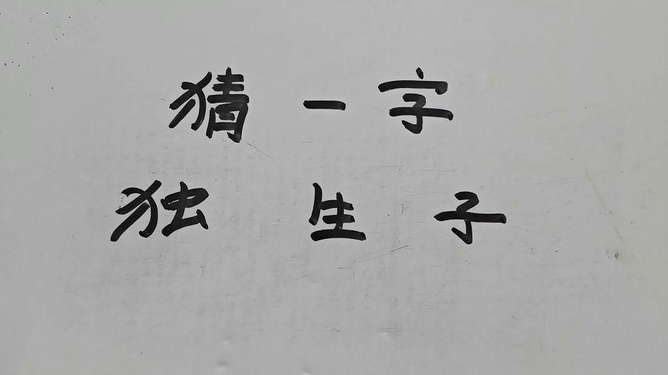 猜一字
独生子